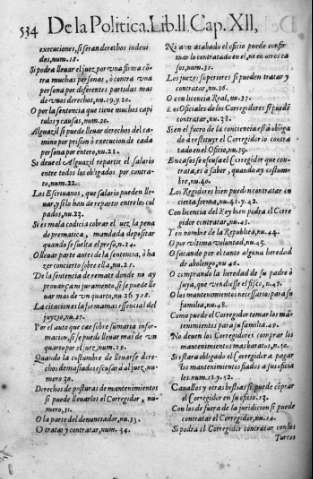 534 De la Politica. Lib. II. Cap. XII,
execuciones, si seran derechos indeui
dos, num. 18.
Si podra lleuar el juez por vna firma cõ
tra muchas personas, ò contra vna
persona por diferentes partidas mas
de vnos derechos, nu. 19. y 20.
O por la sentencia que tiene muchos capi
tulos y causas, num. 20.
Alguazil si puede lleuar derechos del ca-
mino por prision ò execucion de cada
persona por entero, nu. 21.
Si deue el Alguazil repartir el salario
entre todos los obligados por contra-
to, num. 22.
Los Escriuanos, que salario pueden lle-
uar, y si lo han de repartir entre los cul
pados, nu. 23.
Si es mala codicia cobrar el juez la pena
de prematica, mandada depositar
quando se suelta el preso, n. 24.
O lleuar parte antes de la sentencia, ò ha
zer concierto sobre ella, nu. 25.
De la sentencia de remate donde no ay
prouança ni juramento, si se puede lle
uar mas de vn quarto, nu. 26. y 28.
La citacion es lo mas essencial del
juyzio, nu. 27.
Por el auto que cae sobre sumaria infor-
macion, si se puede lleuar mas de vn
quarto por el juez, num. 29.
Quando la costumbre de lleuarse dere-
chos demasiados escusarà al juez, nu-
mero 30.
Derechos de posturas de mantenimientos
si puede lleuarlos el Corregidor, nu-
mero, 31.
O la parte del denunciador, nu. 33.
O tratar y contratar, num. 34.
Ni aun acabado el oficio puede confir
mar lo contratado en el, ni en otros ca
sos, num. 35.
Los juezes superiores si pueden tratar y
contratar, n. 36.
O con licencia Real, nu. 37.
Los Oficiales de los Corregidores si puedẽ
contratar, nu. 38.
Si en el fuero de la conciencia està obliga
do à restituyr el Corregidor lo contra
tado en el Oficio, nu. 39.
En casos se escusa el Corregidor que con-
trata, es à saber, quando ay costum-
bre, nu. 40.
Los Regidores bien pueden contratar en
cierta forma, nu. 41. y 42.
Con licencia del Rey bien podrà el Corre
gidor contratar, nu. 43.
Y en nombre de la Republica, nu. 44.
O por vltima voluntad, nu. 45.
O sacando por el tanto alguna heredad
de abolengo, nu. 46.
O comprando la heredad de su padre ò
suya, que vendiesse el fisco, n. 47.
O los mantenimientos necessarios para su
familia, nu. 48.
Como puede el Corregidor tomar los mã-
tenimientos para su familia. 49.
No deuen los Corregidores comprar los
mantenimientos mas baratos, n. 50.
Si estarà obligado el Corregidor à pagar
los mantenimientos fiados a sus oficia
les, num. 51. y 52.
Cauallos y otras bestias si puede cõprar
el Corregidor en su oficio, 53.
Con los de fuera de la juridicion si puede
contratar, nu. 54.
Si podrà el Corregidor contratar con los
Turcos